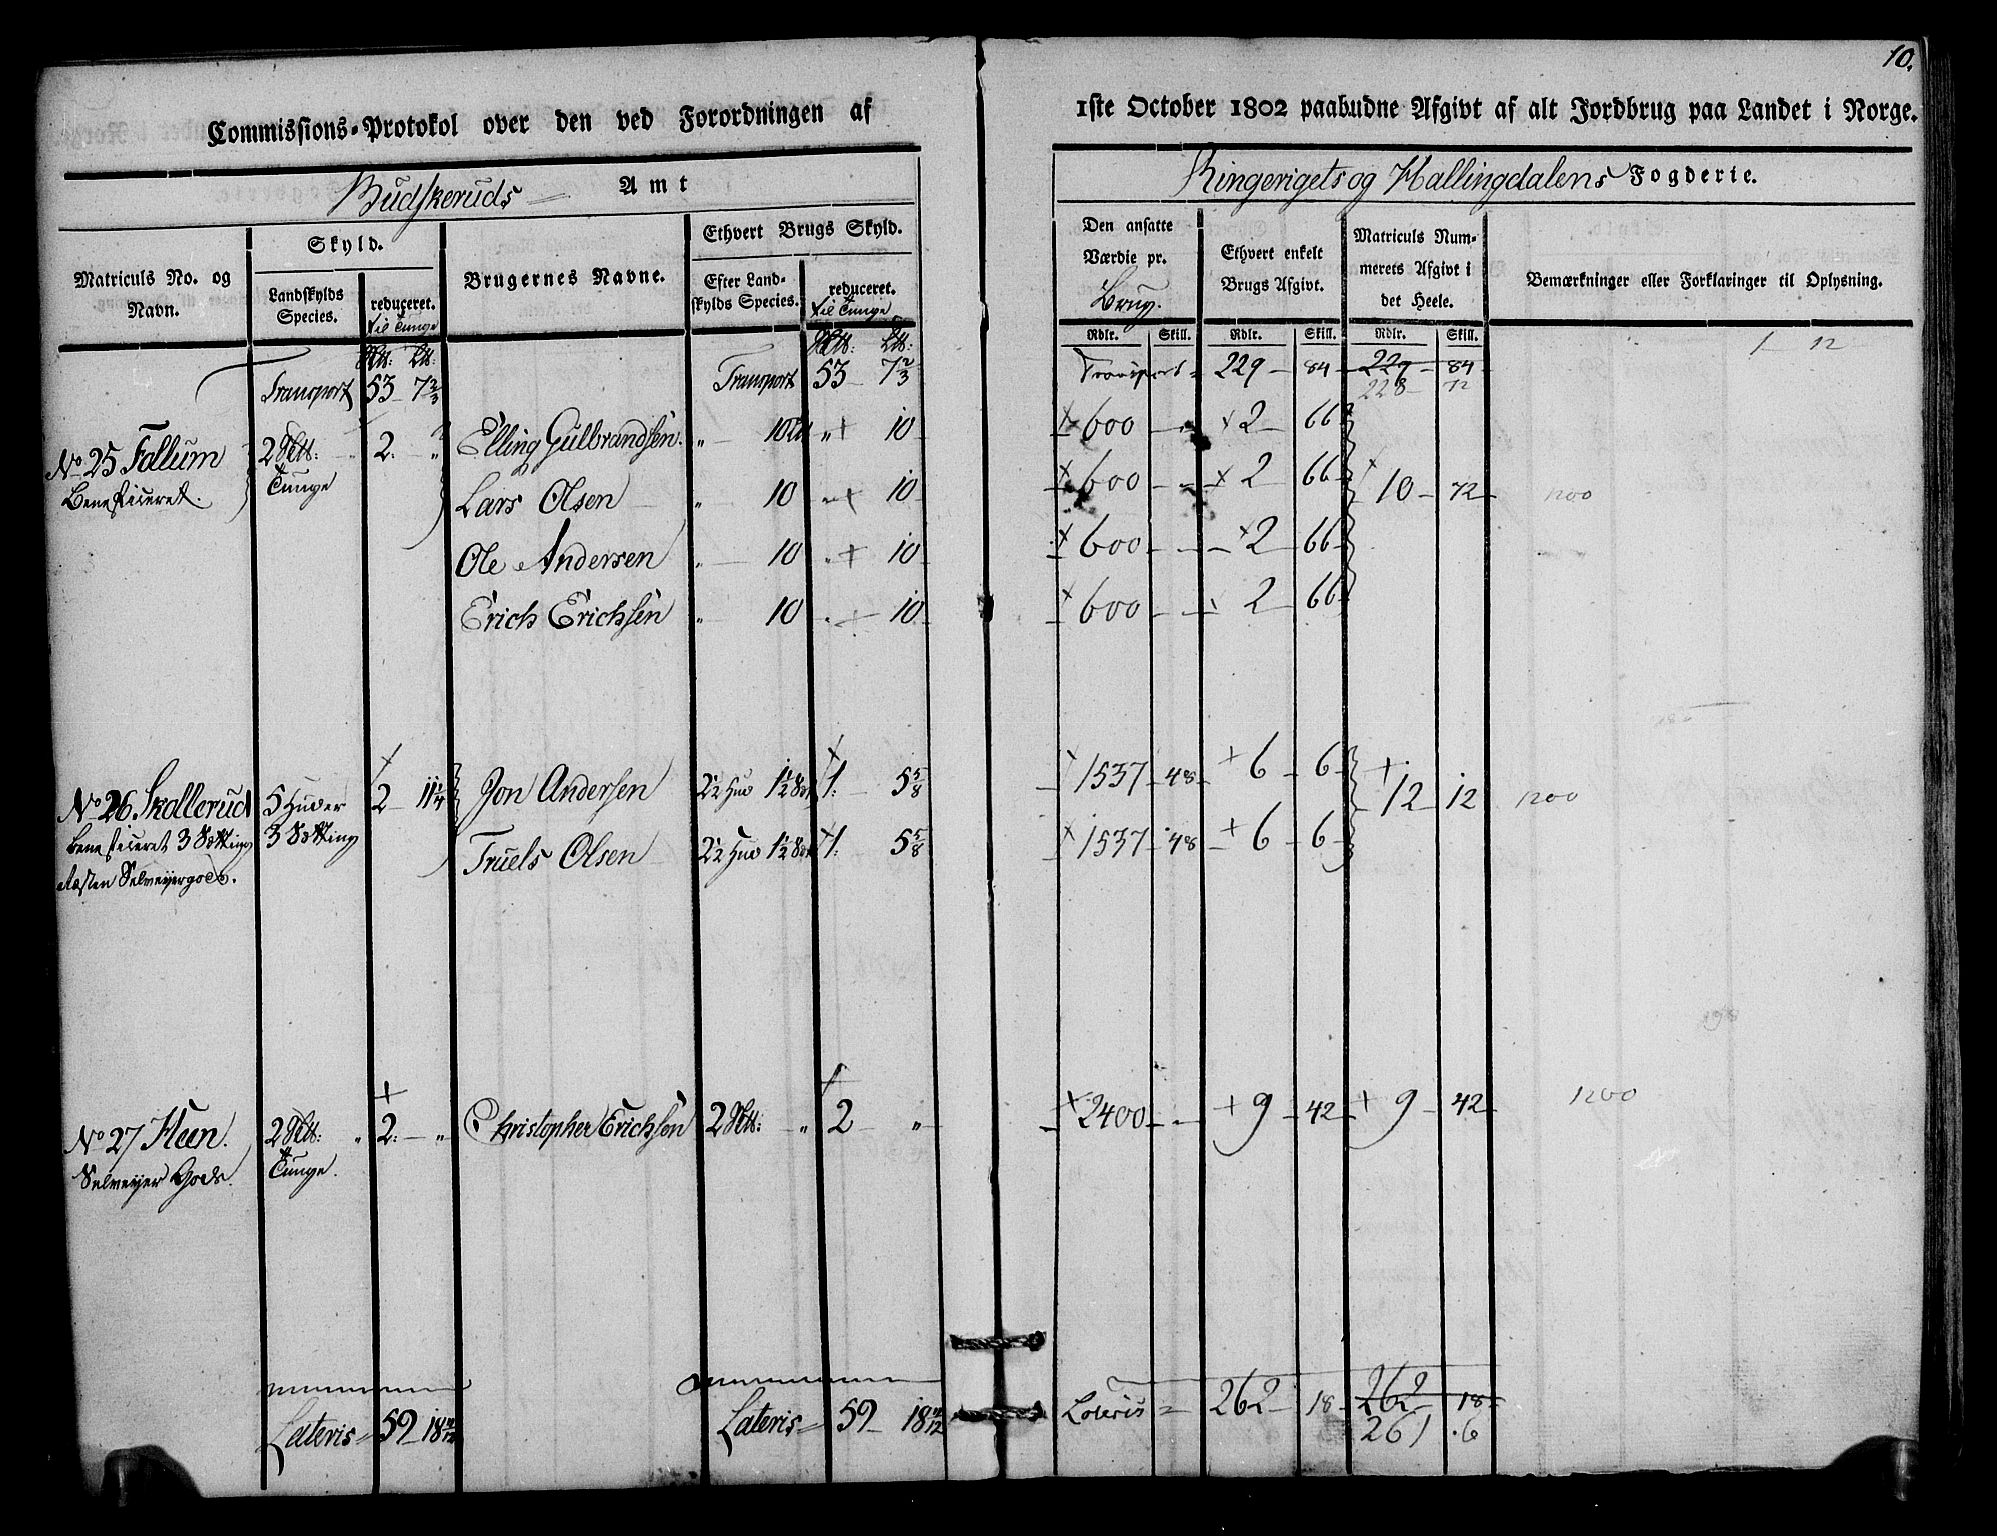 10.
Commissions-Protokol over den ved Forordningen af 1ste October 1802 paabudne Afgivt af alt Jordbrug paa Landet i Norge.
Budskeruds Amt
Ringerigets og Hallingdalens Fogderie.
Matriculs No. og Navn.
Skyld.
Landskylds Species.
reduceret.
til Tunge
Brugernes Navne.
Ethvert Brugs Skyld.
Efter Landskylds Species.
reduceret.
til Tunge
Den ansatte Værdie pr. Brug.
Ethvert enkelt Brugs Afgivt.
Matriculs Nummerets Afgivt i det Heele.
Bemærkninger eller Forklaringer til Oplysning.
Rdlr. Skill. Rdlr. Skill. Rdlr. Skill.
Transport 53 7 2/3 Transport 53 7 2/3 Transport 229 84 229 84
228 72
1 12
No 25 Follum 2 Sktt: " 2. " Elling Gulbrandsen. " 10 " + 10 + 600 + 2 66
Beneficeret. Tunge Lars Olsen " 10 " + 10 + 600 + 2 66 + 10 72 1200
Ole Andersen " 10 " + 10 + 600 + 2 66
Erich Erichsen " 10 " + 10 + 600 + 2 66
No 26 Skollerud 5 Huder 2 11 1/4 Jon Andersen 2 1/2 Hud 1 1/2 1. 5 5/8 + 1537 48 + 6 6 + 12 12 1200
beneficeret 3 Sætting 3 Sætting Truels Olsen 2 1/2 Hud 1 1/2 1. 5 5/8 + 1537 48 + 6 6
Resten Selveyergods.
No 27 Heen. 2 Sktt: " 2. " Christopher Erichsen 2 Sktt: " 2 " + 2400 + 9 42 + 9 42 1200
Selveyer Gods. Tunge.
Lateris 59 18 11/12 Lateris 59 18 11/12 Lateris 262 18 262 18
261 6